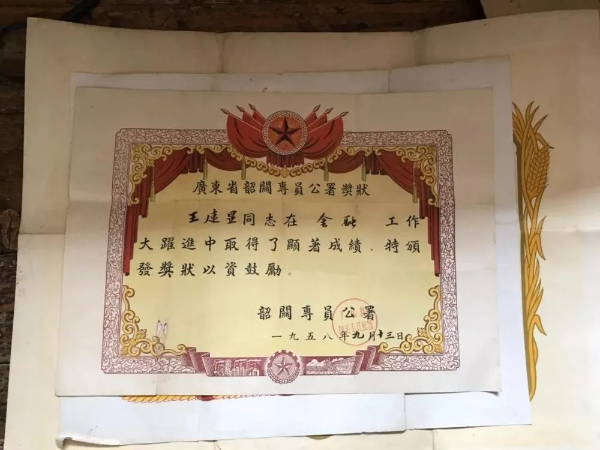 廣東省韶關專員公署獎狀
王建星同志在 金融 工作
大躍進中取得了顯著成績．特頒
發獎狀以資鼓勵。
韶關專員公署
一九五八年九月十三日